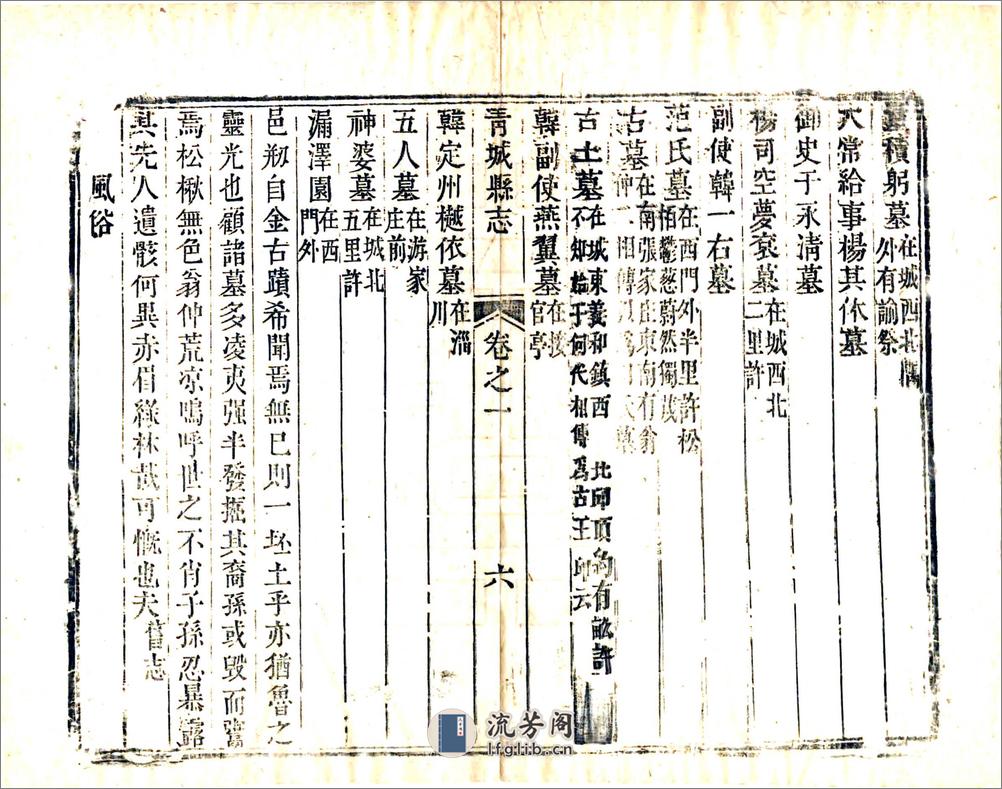 積躬墓在城西北隅外有諭祭
大常給事楊其休墓
御史于永清墓
楊司空夢袞墓在城西北二里許
副使韓一右墓
范氏墓在西門外半里許松柏鬱葱蔚然獨茂
古墓在南張家庄東南有翁仲一相傳
古土墓在城東義和鎮西北邱頂約有畝許不知始于何代相傳爲古王邱云
韓副使燕翼墓在接官亭
青城縣志 卷之一 六
韓定州樾依墓在淄川
五人墓在游家庄前
神婆墓在城北五里許
漏澤園在西門外
邑剏自金古蹟希聞焉無已則一坯土乎亦猶魯之
靈光也顧諸墓多凌夷强半發掘其裔孫或毀而鬻
焉松楸無色翁仲荒凉嗚呼世之不肖子孫忍暴露
其先人遺骸何異赤眉綠林哉可慨也夫舊志
風俗
流芳阁
lfglib.cn